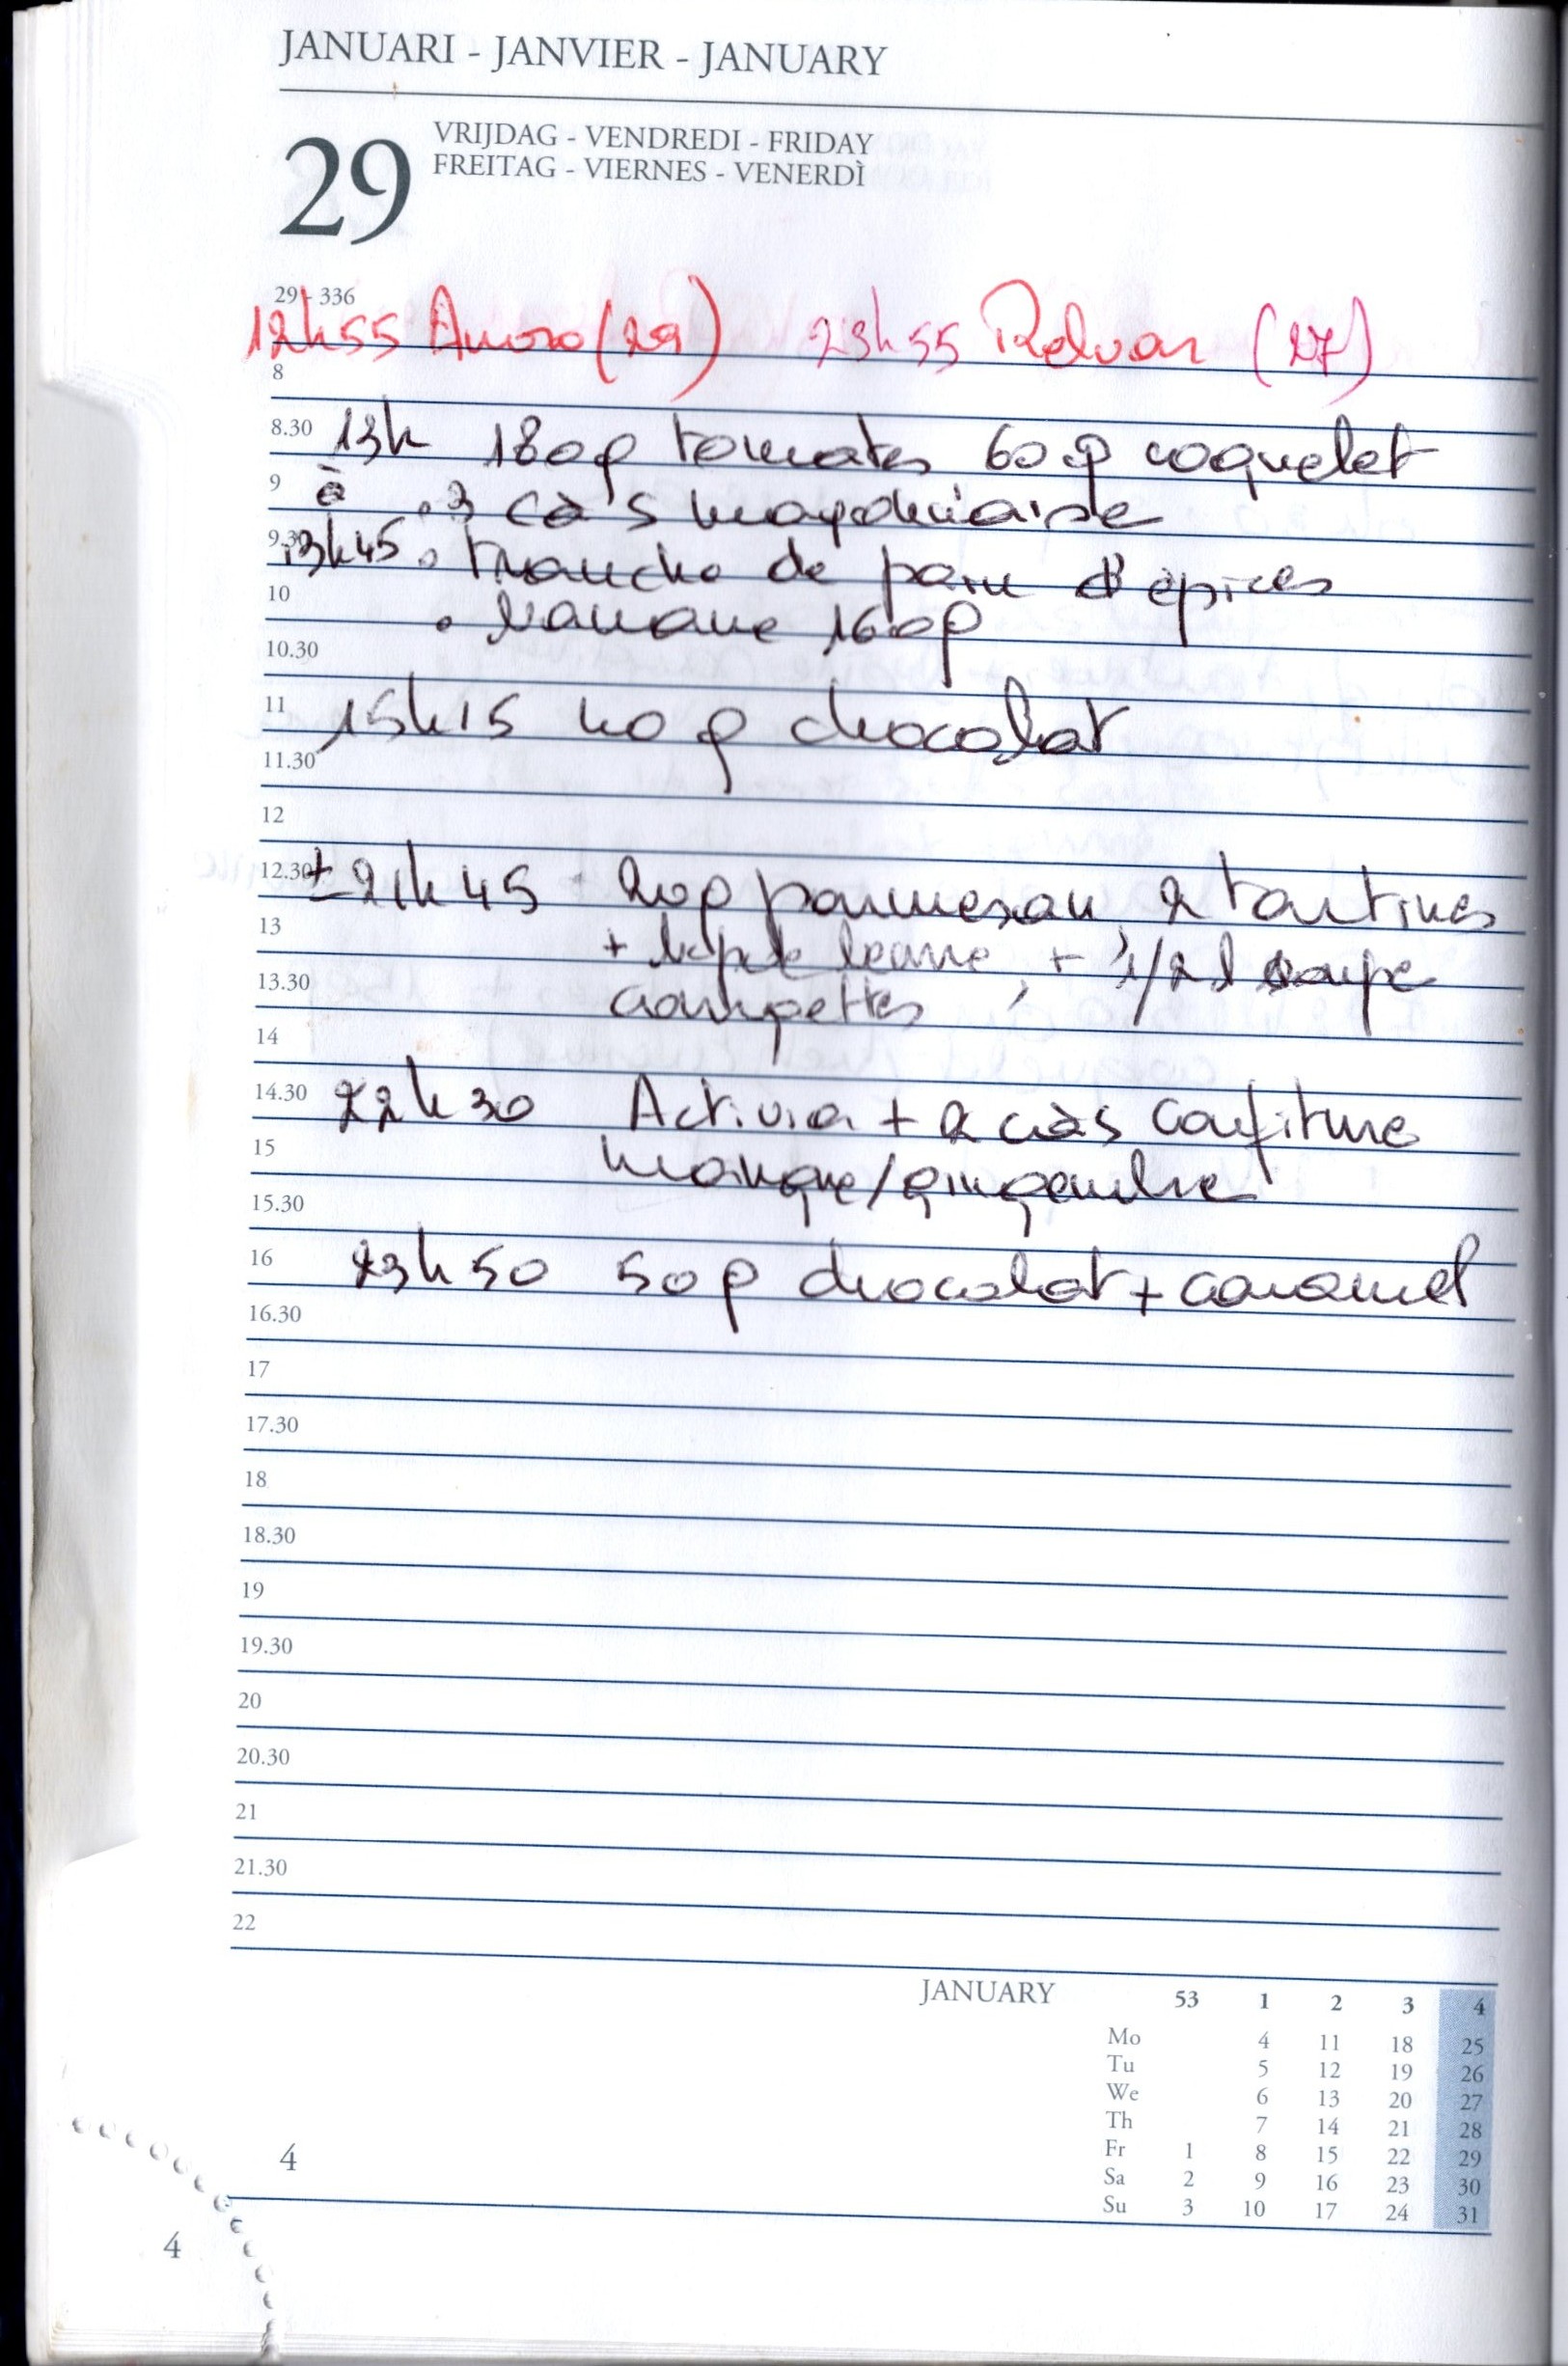 JANUARI - JANVIER - JANUARY
29
VRIJDAG - VENDREDI - FRIDAY
FREITAG - VIERNES - VENERDÌ
29 - 336
12h55 (29) 23h55 Reluar (27)
8
8.30 13h 180g tomates 60g coquelet
9 à . 3 càs mayonnaise
9.30 13h45 . tranche de pain d'épices
10 . banane 160g
10.30
11 15h15 40 g chocolat
11.30
12
12.30 ± 21h45 20g parmesan, 2 tartines
13 + + 1/2 l soupe
13.30 courgettes
14
14.30 22h30 Activia + 2 càs confiture
15 mangue/gingembre
15.30
16 23h50 50g chocolat + caramel
16.30
17
17.30
18
18.30
19
19.30
20
20.30
21
21.30
22
JANUARY 53 1 2 3 4
Mo 4 11 18 25
Tu 5 12 19 26
We 6 13 20 27
Th 7 14 21 28
Fr 1 8 15 22 29
Sa 2 9 16 23 30
Su 3 10 17 24 31
4
4